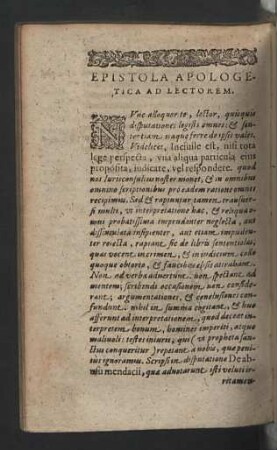 EPISTOLA APOLOGE-
TICA AD LECTOREM.
NVnc alloquor te, lector, quisquis
disputationes legisti omnes: & sin-
itaque ferre de ipsis vales.
Videlicet, Inciuile est, nisi tota
lege perspecta, vna aliqua particula eius
proposita, iudicare, vel respondere. quod
nos Iurisconsultus noster monet, & in omnibus
omnino scriptionibus pro eadem ratione omnes
recipimus. Sed & rapiuntur tamen transuer-
si multi, vt interpretatione hac, & reliqua o-
mni probatissima imprudenter neglecta, aut
dissimulata insipienter, aut etiam, impuden-
ter reiecta, rapiant sic de libris sententiolas,
quas vocent in crimen, & in inuidiam, colló-
quoque obtorto, & faucibus ad se attrahant.
Non ad verba aduertunt. non spectant ad
mentem; scribendi occasionem non conside-
rant; argumentationes, & conclusiones con-
fundunt: nihil in summa cogitant, & huc
afferunt ad interpretationem, quod decet in-
terpretem bonum, homines imperiti, atque
maliuoli: testes iniurij, qui (vt propheta san-
ctus conqueritur) repetant a nobis, quæ peni-
tus ignoramus. Scripsi in disputatione De ab-
usu mendacij, quæ adnotarunt isti veluti ir-